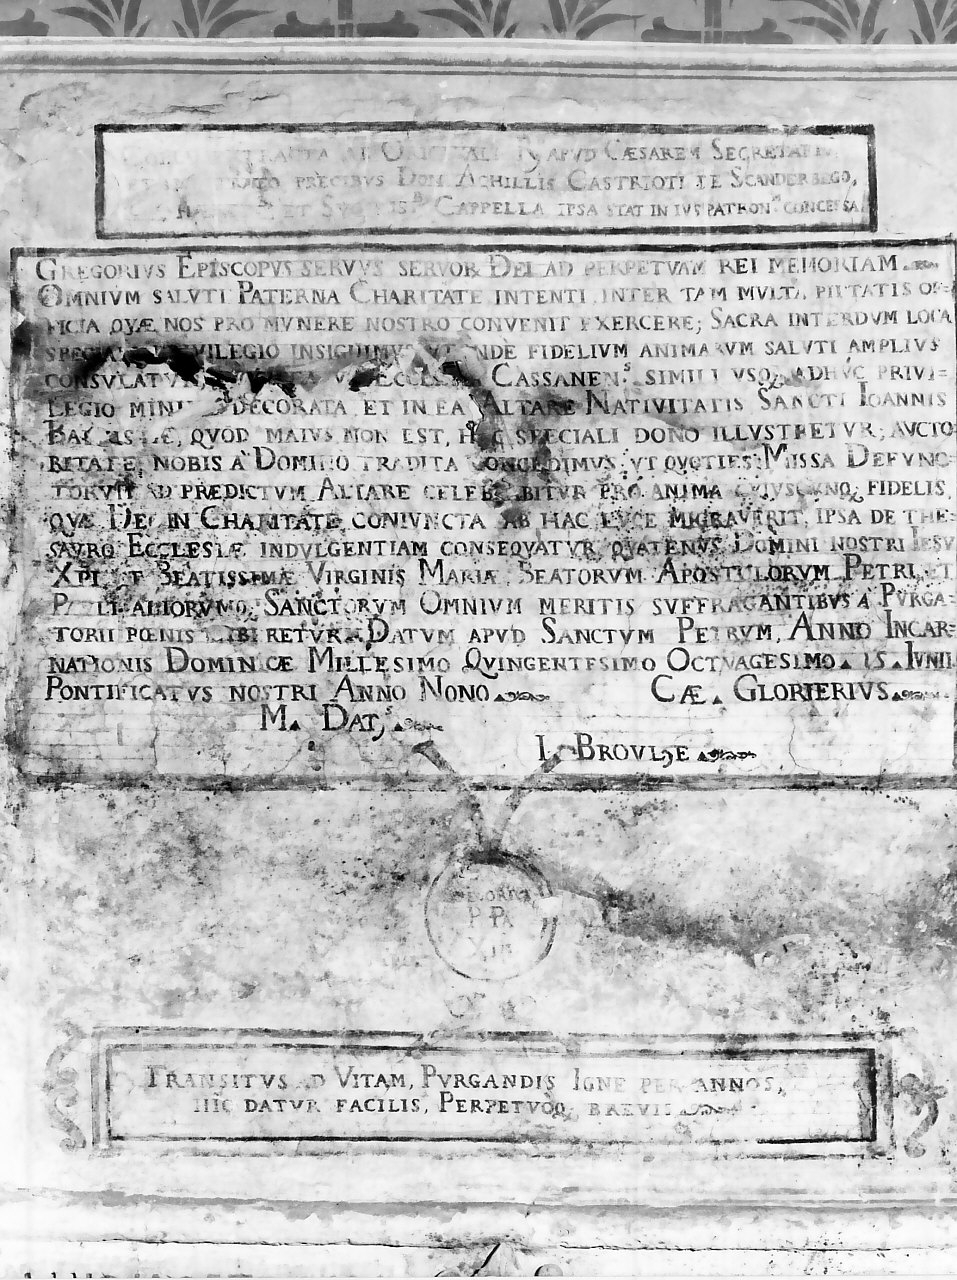 ORIGINALI APVD CÆSAREM
PRECIBVS DOM. ACHILLIS CASTRIOTI
ET CAPPELLA IPSA STAT IN IVS PATRON CONCESSA
GREGORIVS EPISCOPVS SERVVS SERVOR DEI AD PERPETVAM REI MEMORIAM
OMNIVM SALVTI PATERNA CHARITATE INTENTI INTER TAM MVLTA PIETATIS OF=
FICIA QVÆ NOS PRO MVNERE NOSTRO CONVENIT EXERCERE; SACRA INTERDVM LOCA
SPECIALI PRIVILEGIO INSIGNIMVS VT INDE FIDELIVM ANIMARVM SALVTI AMPLIVS
CONSVLATVR ECCLESIA CASSANEN.S SIMILI VSQ; ADHVC PRIVI=
LEGIO MINIME DECORATA ET IN EA ALTARE NATIVITATIS SANCTI IOANNIS
BAPTISTÆ, QVOD MAIVS NON EST, HOC SPECIALI DONO ILLVSTRETVR; AVCTO
RITATE NOBIS A DOMINO TRADITA CONCEDIMVS, VT QVOTIES MISSA DEFVNC=
TORVM AD PRÆDICTVM ALTARE CELEBRABITVR PRO ANIMA CVIVSCVNQ; FIDELIS,
QVÆ DEI IN CHARITATE CONIVNCTA AB HAC LVCE MIGRAVERIT, IPSA DE THE=
SAVRO ECCLESIÆ INDVLGENTIAM CONSEQVATVR, QVATENVS DOMINI NOSTRI IESV
XPI ET BEATISSIMÆ VIRGINIS MARIÆ, BEATORVM APOSTOLORVM PETRI, ET
PAVLI ALIORVMQ; SANCTORVM OMNIVM MERITIS SVFFRAGANTIBVS A PVRGA=
TORII PŒNIS LIBERETVR. DATVM APVD SANCTVM PETRVM, ANNO INCAR=
NATIONIS DOMINICÆ MILLESIMO QVINGENTESIMO OCTVAGESIMO. 15. IVNII.
PONTIFICATVS NOSTRI ANNO NONO CÆ. GLORIERIVS
M. DAT,S
BROVLÆ
GREGORIVS
PP.
XIII
TRANSITVS AD VITAM, PVRGANDIS IGNE PER ANNOS,
HIC DATVR FACILIS, PERPETVOQ; BREVIS